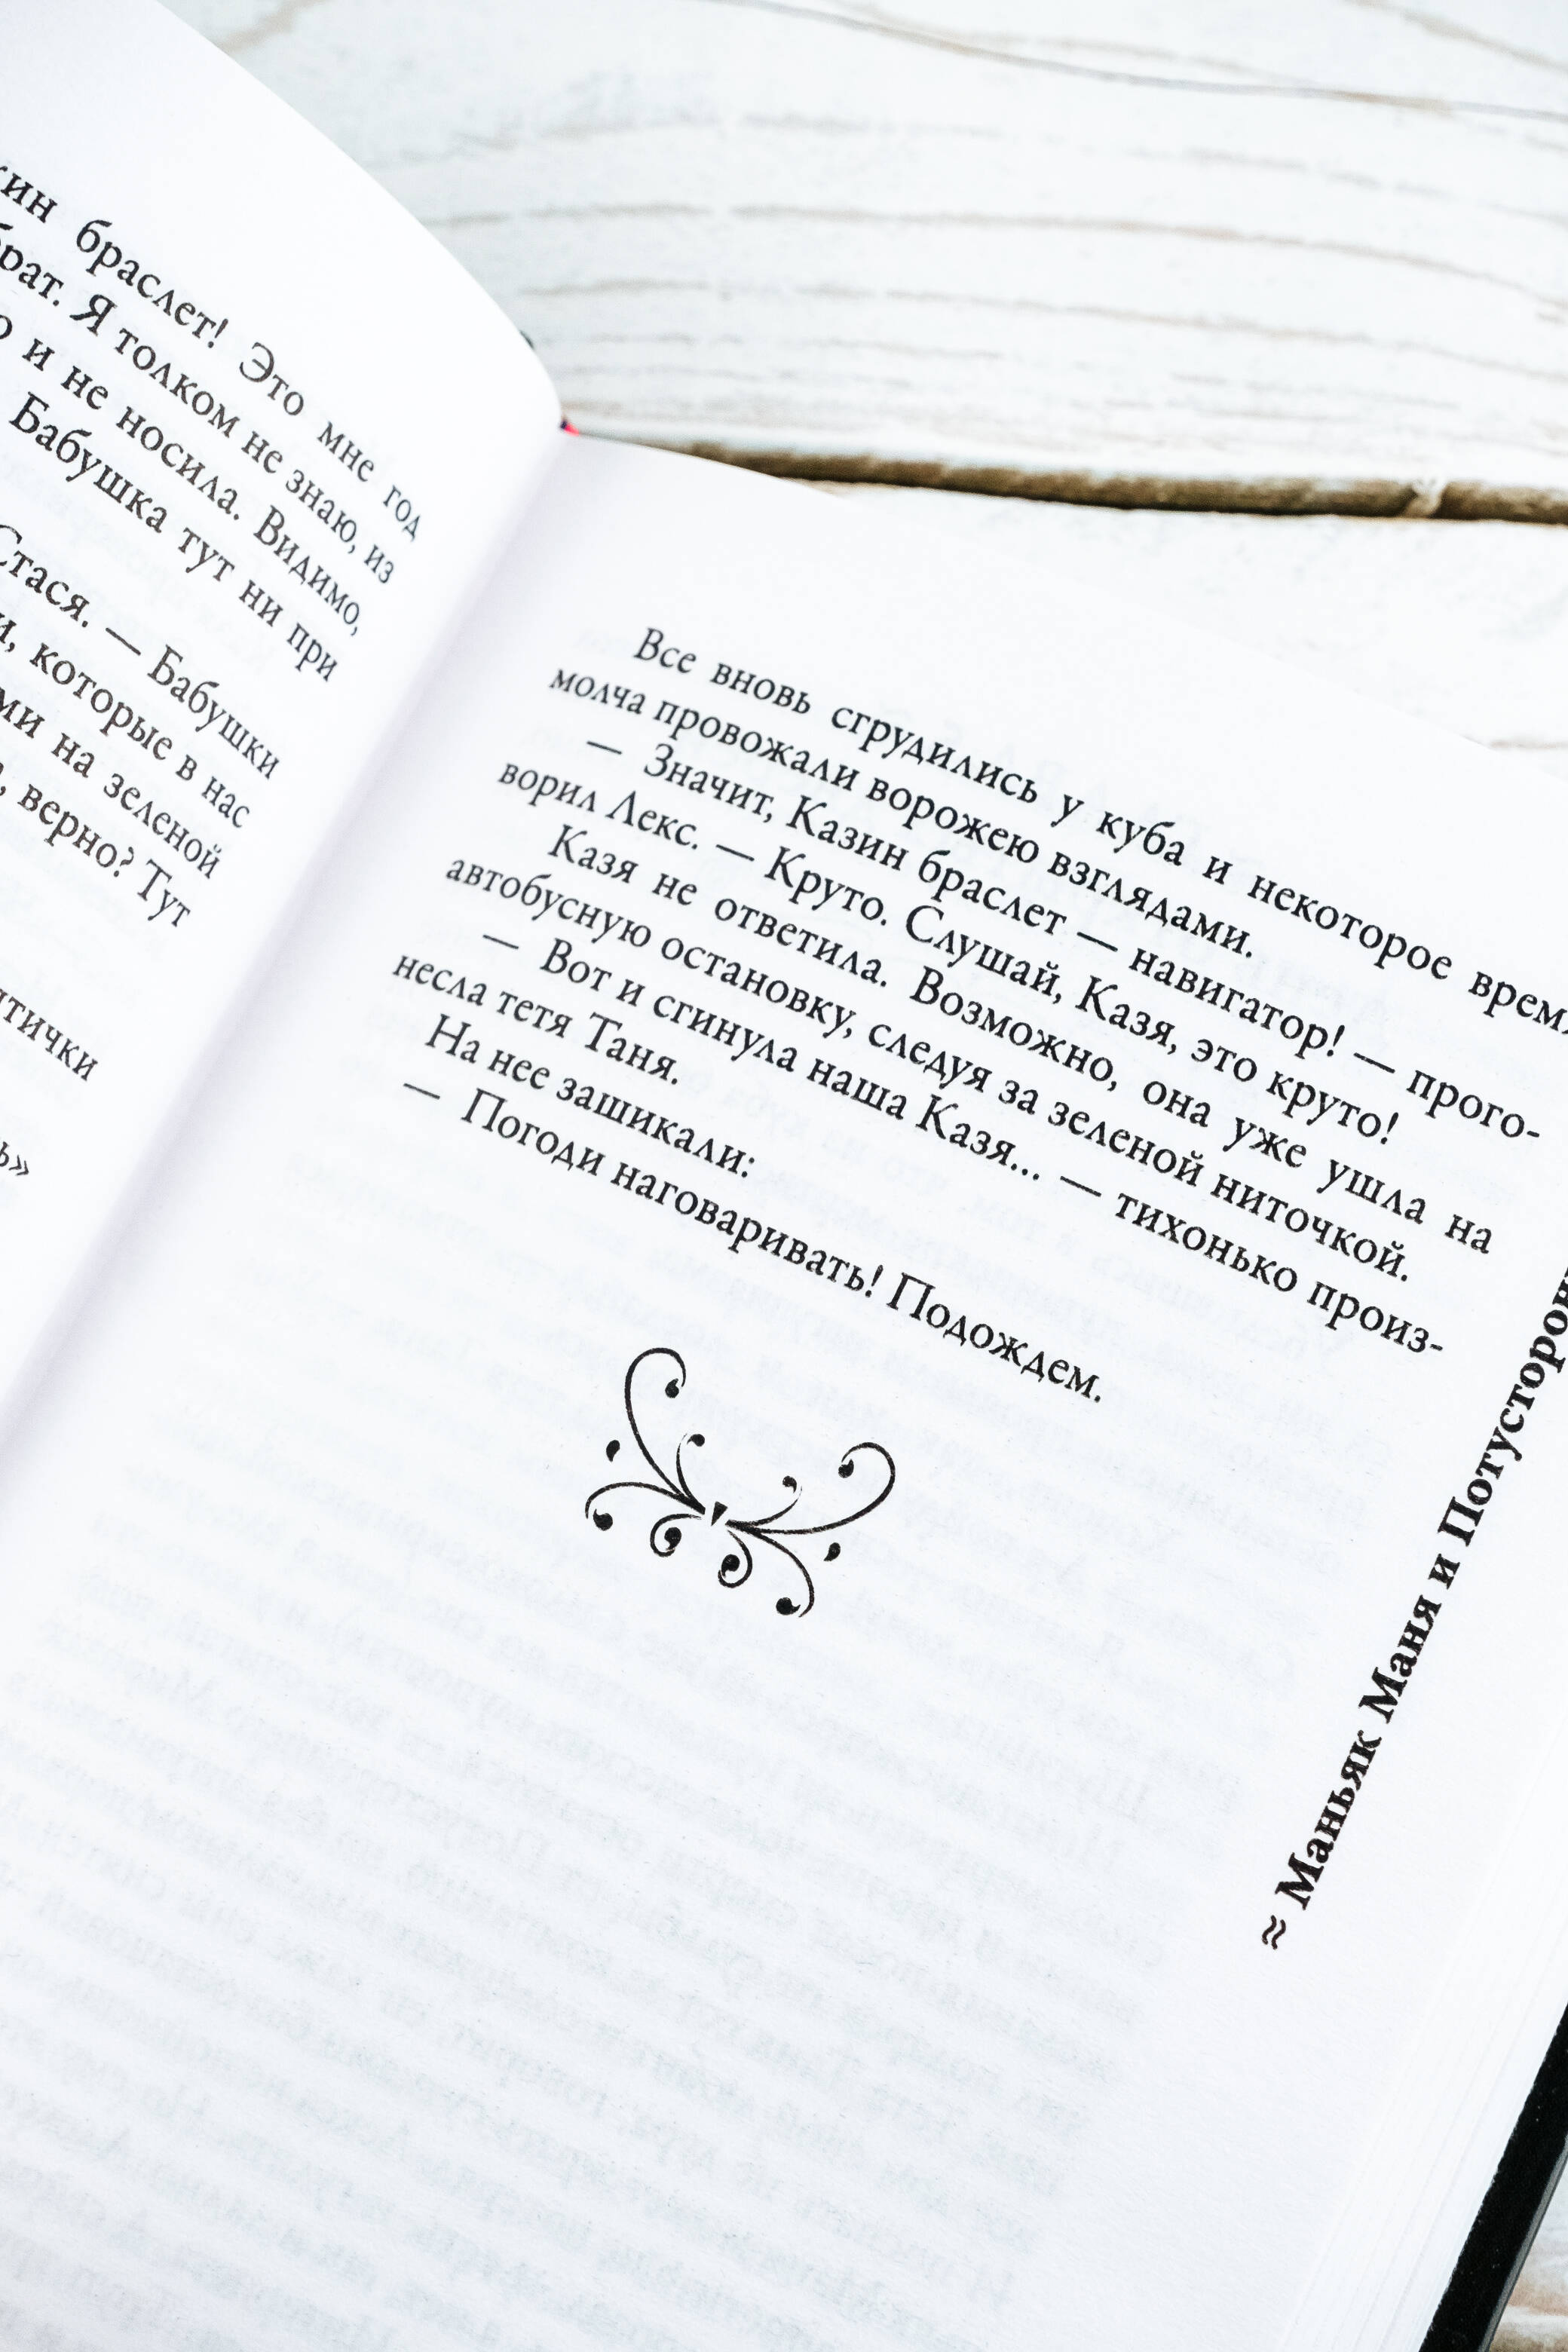 браслет! Это мне год
брат. Я толком не знаю, из
и не носила. Видимо,
Бабушка тут ни при
Стася. — Бабушки
которые в нас
на зеленой
верно? Тут
Все вновь сгрудились у куба и некоторое
молча провожали ворожею взглядами.
— Значит, Казин браслет — навигатор! — прого-
ворил Лекс. — Круто. Слушай, Казя, это круто!
Казя не ответила. Возможно, она уже ушла на
автобусную остановку, следуя за зеленой ниточкой.
— Вот и сгинула наша Казя... — тихонько произ-
несла тетя Таня.
На нее зашикали:
— Погоди наговаривать! Подождем.
≈ Маньяк Маня и